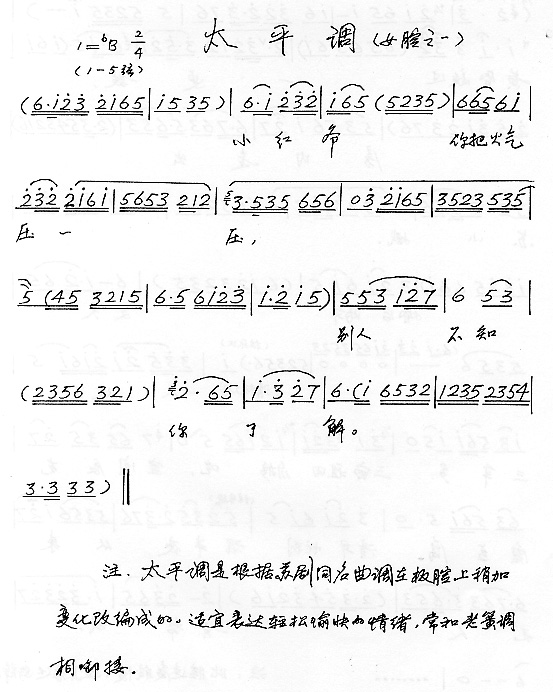 1=ᵇB 2/4 太平调(女腔之一)
(1-5弦)
(6·i̇2̇3̇ 2̇i̇65|i̇535)|6·i̇ 2̇3̇2̇|i̇65(5235)|6656i̇|
小 红 布 你把火气
2̇3̇2̇ 2̇i̇6i̇|5653 212|3·535 656|03̇ 2̇i̇65|3523535|
压 一 压,
5(45 3215|6·5 6i̇2̇3̇|i̇·2̇ i̇5)|553 i̇2̇7|6 53|
别人 不知
(2356 321)|2̇·65|i̇·3̇ 2̇7|6·(i̇ 6532|1235 2354|
你 了 解。
3·3 33)‖
注.太平调是根据苏剧同名曲调在板腔上稍加
变化改编成的。适宜表达轻松愉快的情绪,常和老簧调
相啣接.